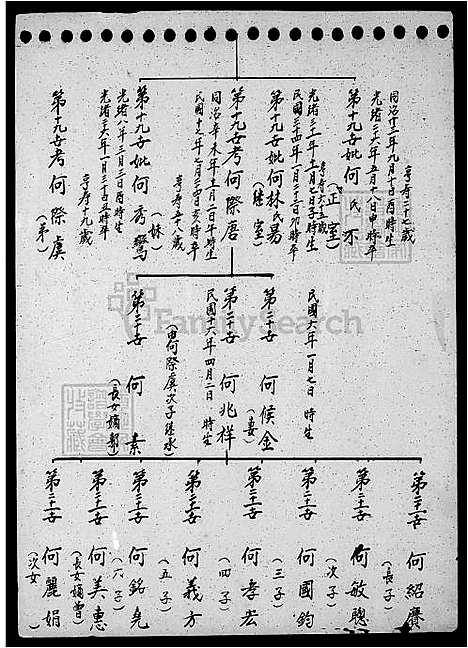 享寿二十七歲
同治十三年九月十日酉時生
光緒二十六年五月十八日申時卒
第十九世妣何氏不
(正室)
光緒三十一年十一月七日子時生
民國三十四年一月二十三日卯時卒
第十九世妣何林氏易
(継室)
第十九世考何際唐
同治辛未年十二月二日午時生
民國十七年七月二十四日亥時卒
享寿五十八歲
第十九世妣何秀鸞
(妹)
光緒八年三月三日酉時生
光緒二十六年一月三十日丑時卒
享寿十九歲
第十九世考何際虞
(弟)
民國六年一月七日 時生
第二十世 何候金
(妻)
第二十世 何兆祥
民國十六年四月二日 時生
(由何際虞次子継承)
第二十世 何 素
(長女嫡鄭)
FamilySearch
第二十一世 何紹賡
(長子)
第二十一世 何敏聰
(次子)
第二十一世 何國鈞
(三子)
第二十一世 何孝宏
(四子)
第二十一世 何義方
(五子)
第二十一世 何銘堯
(六子)
第二十一世 何美惠
(長女嫡曾)
第二十一世 何麗娟
(次女 )